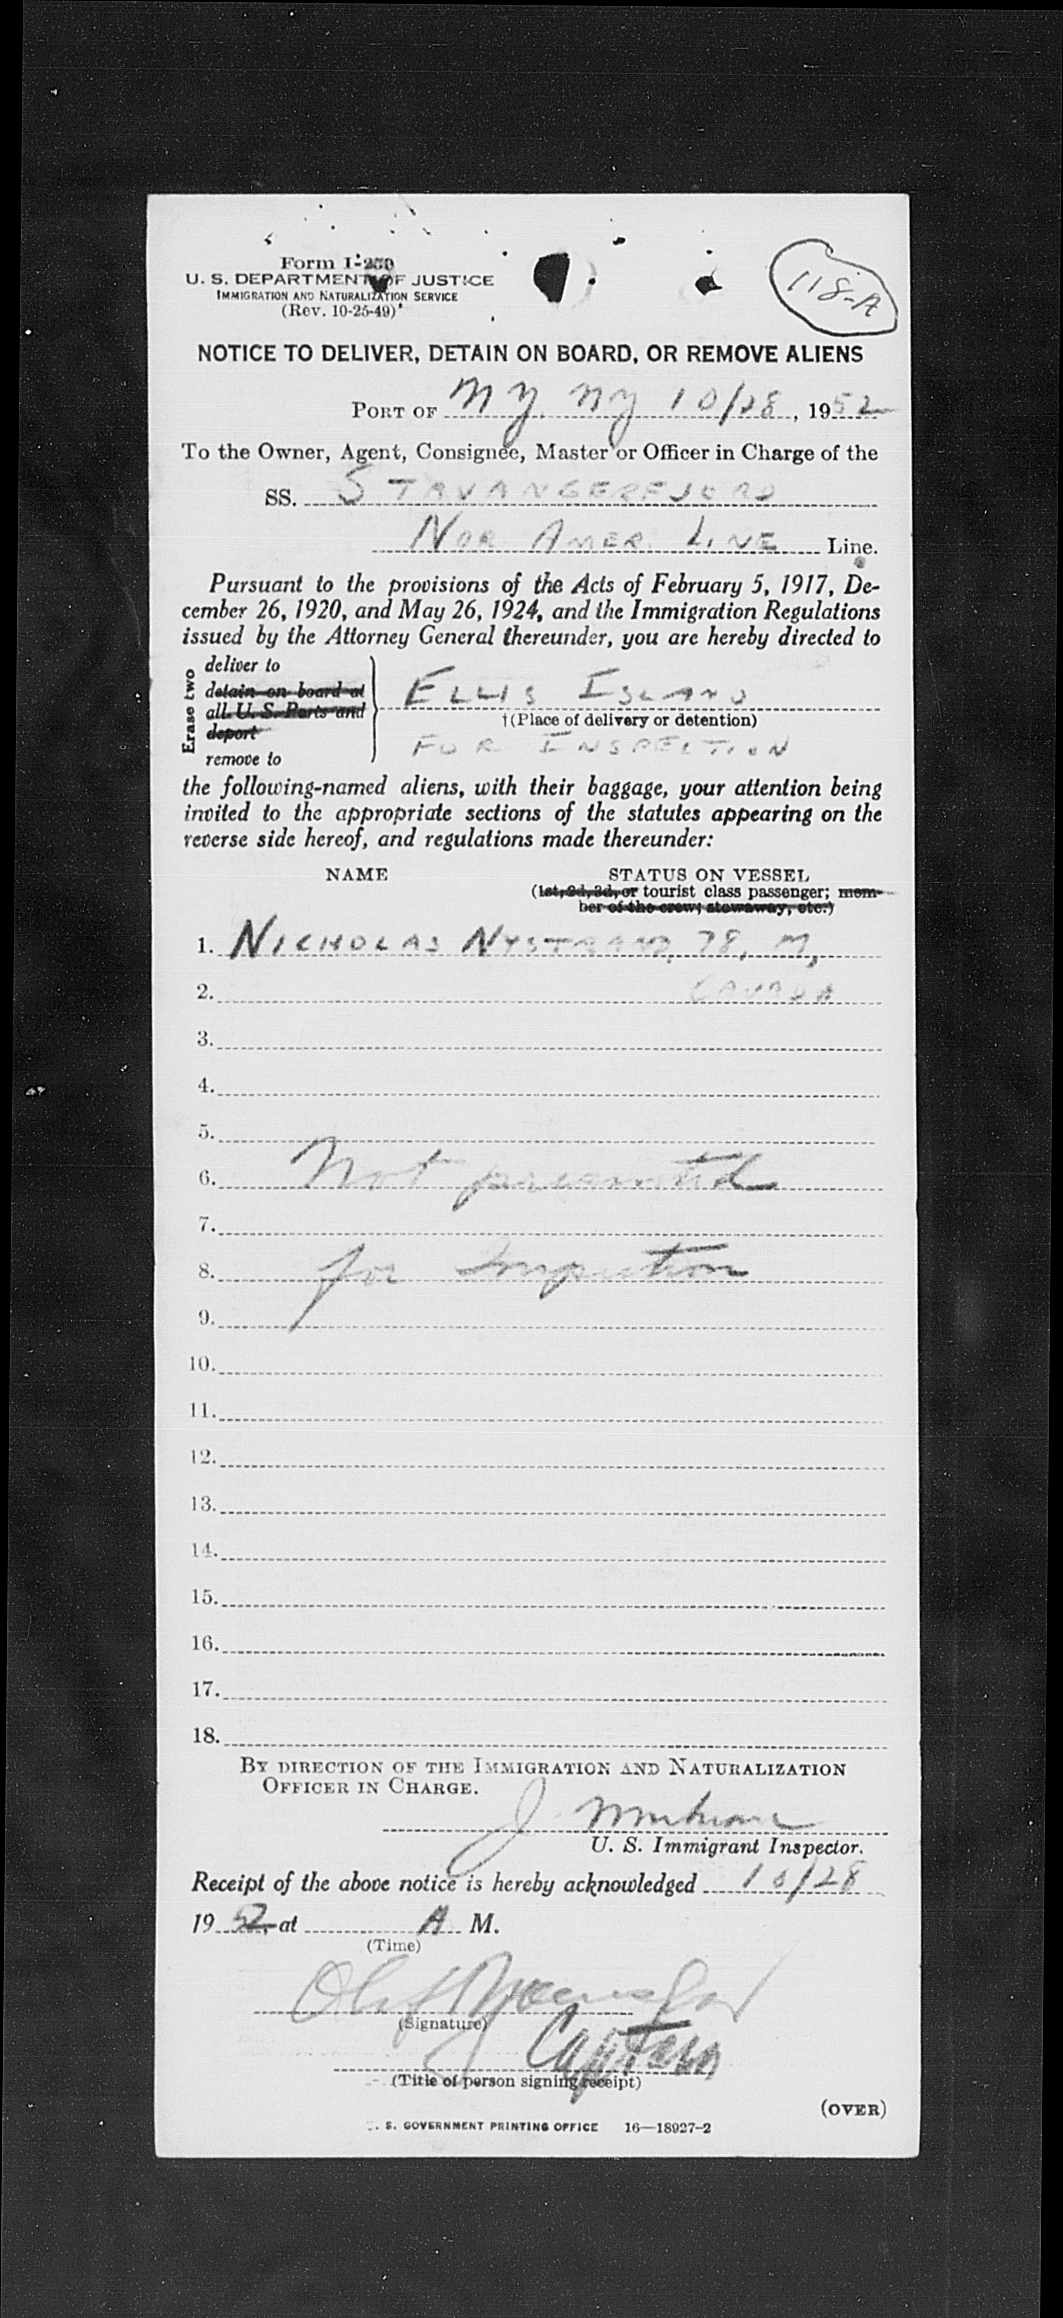 118-A
Form I-259
U. S. DEPARTMENT OF JUSTICE
IMMIGRATION AND NATURALIZATION SERVICE
(Rev. 10-25-49)
NOTICE TO DELIVER, DETAIN ON BOARD, OR REMOVE ALIENS
PORT OF NY NY 10/28, 1952
To the Owner, Agent, Consignee, Master or Officer in Charge of the
SS. STAVANGERFJORD
NOR AMER. LINE Line.
Pursuant to the provisions of the Acts of February 5, 1917, De-
cember 26, 1920, and May 26, 1924, and the Immigration Regulations
issued by the Attorney General thereunder, you are hereby directed to
Erase two
deliver to
detain on board at
all U. S. Ports and
deport
remove to
ELLIS ISLAND
†(Place of delivery or detention)
FOR INSPECTION
the following-named aliens, with their baggage, your attention being
invited to the appropriate sections of the statutes appearing on the
reverse side hereof, and regulations made thereunder:
NAME STATUS ON VESSEL
(1st, 2d, 3d, or tourist class passenger; mem-
ber of the crew; stowaway, etc.)
1. NICHOLAS NYSTRAND, 78, M,
2. CANADA
3.
4.
5.
6. Not presented
7.
8. for Inspection
9.
10.
11.
12.
13.
14.
15.
16.
17.
18.
BY DIRECTION OF THE IMMIGRATION AND NATURALIZATION
OFFICER IN CHARGE.
J.
U. S. Immigrant Inspector.
Receipt of the above notice is hereby acknowledged 10/28
1952, at A M.
(Time)
Olaf
(Signature)
Captain
(Title of person signing receipt)
(OVER)
. S. GOVERNMENT PRINTING OFFICE 16—18927-2